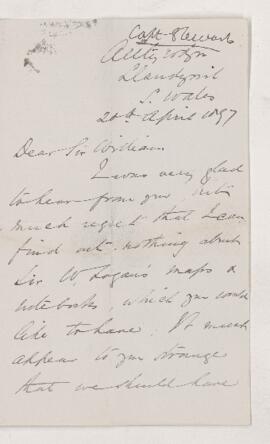 Capt Stewart
Alltyrodyn
Llandyssil
S. Wales
20th April 1897
Dear Sir William
I was very glad
to hear from you, but
much regret that I can
find out nothing about
Sir W. Logan's maps &
notebooks, which you would
like to have. It must
appear to you strange
that we should have